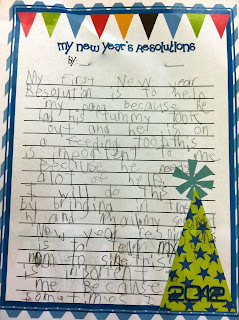 My New Year's Resolutions
By:
My first New year
Resolution is to help
my papa because he
had his tummy took
out and he is on
a feeding tooB this
is important to me
because he needs
alot of help
I will do this
by bringing
h and My
New year resolutions
is to my
mom to see this
is
me because
sometimes I
2012